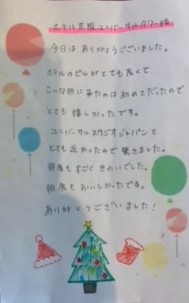 ホテル京阪ユニバーサルタワー様
今日は ありがとうございました。
ホテルのビルがとても高くて、
こんな所に来たのは初めてだったので
とても 嬉しかったです。
ユニバーサルスタジオジャパンと
とても 近かったので 驚きました。
部屋もすごく きれいでした。
朝食も おいしかったです。
ありがとうございました!